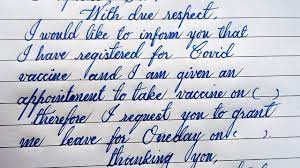 With due respect,
I would like to inform you that
I have registered for Covid
vaccine and I am given an
appointment to take vaccine on ( )
therefore I request you to grant
me leave for Oneday on ( )
thanking you,